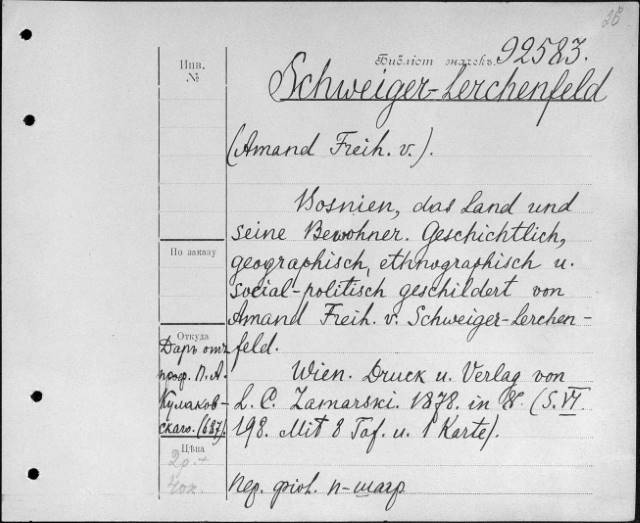 38
Инв.
№
Библіот. значекъ. 92583.
Schweiger-Lerchenfeld
(Amand Freih. v.).
Bosnien, das Land und
seine Bewohner. Geschichtlich,
По заказу
geographisch, ethnographisch u.
social-politisch geschildert von
Amand Freih. v. Schweiger-Lerchen-
feld.
Откуда
Даръ отъ
проф. П. А.
Кулаков-
скаго. (687)
Wien. Druck u. Verlag von
L. C. Zamarski. 1878. in 8°. (S. VI
198. Mit 8 Taf. u. 1 Karte).
Цѣна
2р.
40к.